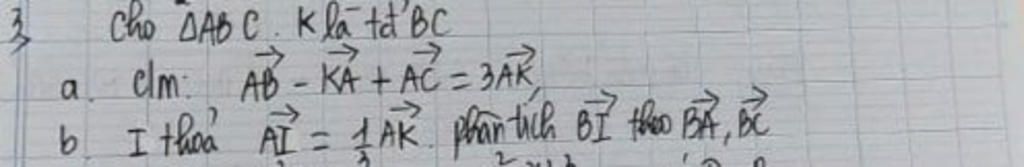 3, Cho ΔABC. K là tđ BC
a. c/m: \overrightarrow{AB} - \overrightarrow{KA} + \overrightarrow{AC} = 3\overrightarrow{AK},
b. I thoả \overrightarrow{AI} = \frac{1}{3}\overrightarrow{AK}. phân tích \overrightarrow{BI} theo \overrightarrow{BA}, \overrightarrow{BC}